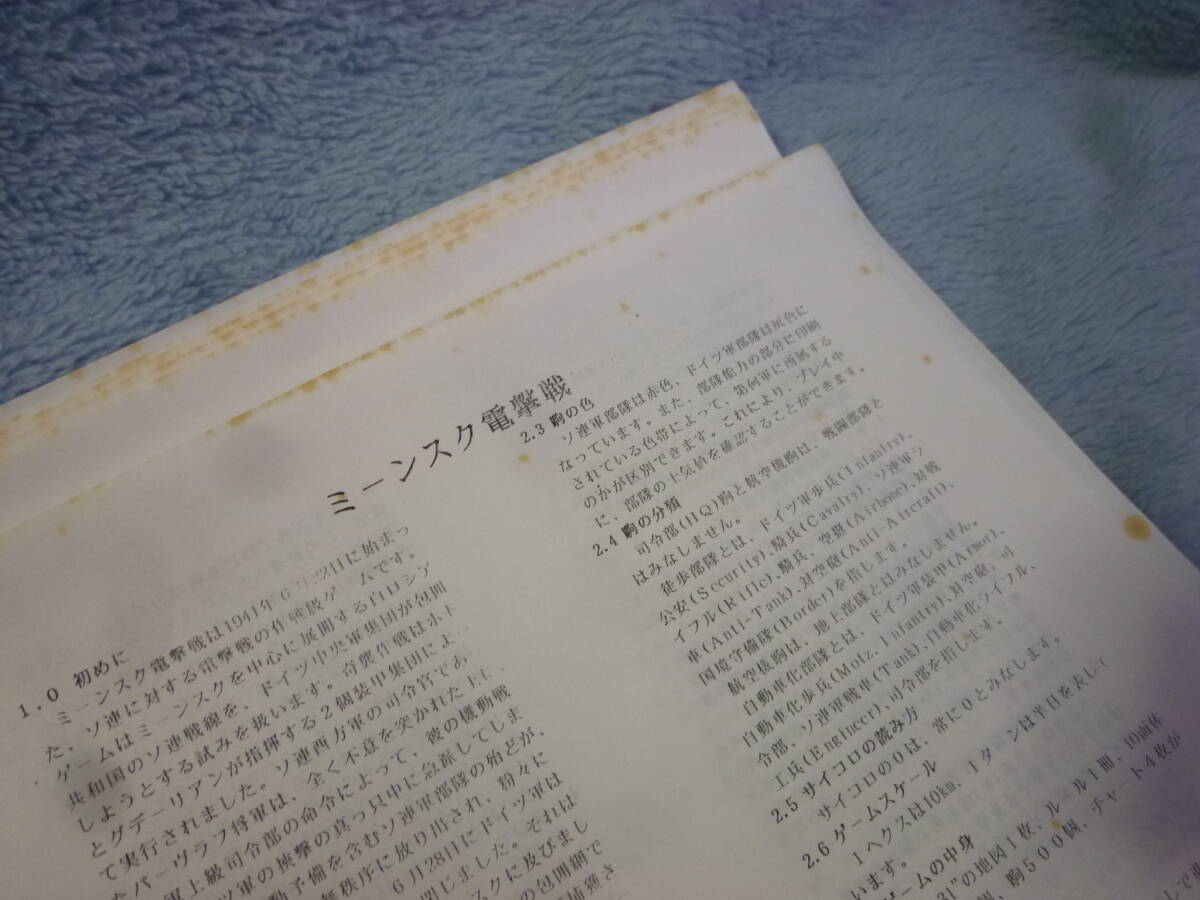 ミーンスク電撃戦
1.0 初めに
ミーンスク電撃戦は1941年6月22日に始まっ
た、ソ連に対する電撃戦の作戦級ゲームです。
ゲームはミーンスクを中心に展開する白ロシア
共和国のソ連戦線を、ドイツ中央軍集団が包囲
しようとする試みを扱います。奇襲作戦はホト
とグデーリアンが指揮する2個装甲集団によ
て実行されました。ソ連西方軍の司令官であ
たパーヴラフ将軍は、全く不意を突かれた上
軍上級司令部の命令によって、彼の機動戦
ツ軍の挟撃の真っ只中に急派してしま
動予備を含むソ連軍部隊の殆どが、
無秩序に放り出され、粉々に
6月28日にドイツ軍は
閉じました。それは
スクに及びまし
の包囲網で
捕獲さ
2.3 駒の色
ソ連軍部隊は赤色、ドイツ軍部隊は灰色に
なっています。また、部隊能力の部分に印刷
されている色帯によって、第何軍に所属する
のかが区別できます。これにより、プレイ中
に、部隊の士気値を確認することができます。
2.4 駒の分類
司令部(HQ)駒と航空機駒は、戦闘部隊と
はみなしません。
徒歩部隊とは、ドイツ軍歩兵(Infantry)、
公安(Security)、騎兵(Cavalry)、ソ連軍ラ
イフル(Rifle)、騎兵、空挺(Airbone)、対戦
車(Anti-Tank)、対空砲(Anti-Aircraft)、
国境守備隊(Border)を指します。
航空機駒は、地上部隊とはみなしません。
自動車化部隊とは、ドイツ軍装甲(Armor)、
自動車化歩兵(Motz. Infantry)、対空砲、司
令部、ソ連軍戦車(Tank)、自動車化ライフル、
工兵(Engineer)、司令部を指します。
2.5 サイコロの読み方
サイコロの0は、常に0とみなします。
2.6 ゲームスケール
1ヘクスは10km、1ターンは半日を表して
います。
ゲームの中身
31"の地図1枚、ルール1冊、10面体
個、駒500個、チャート4枚が